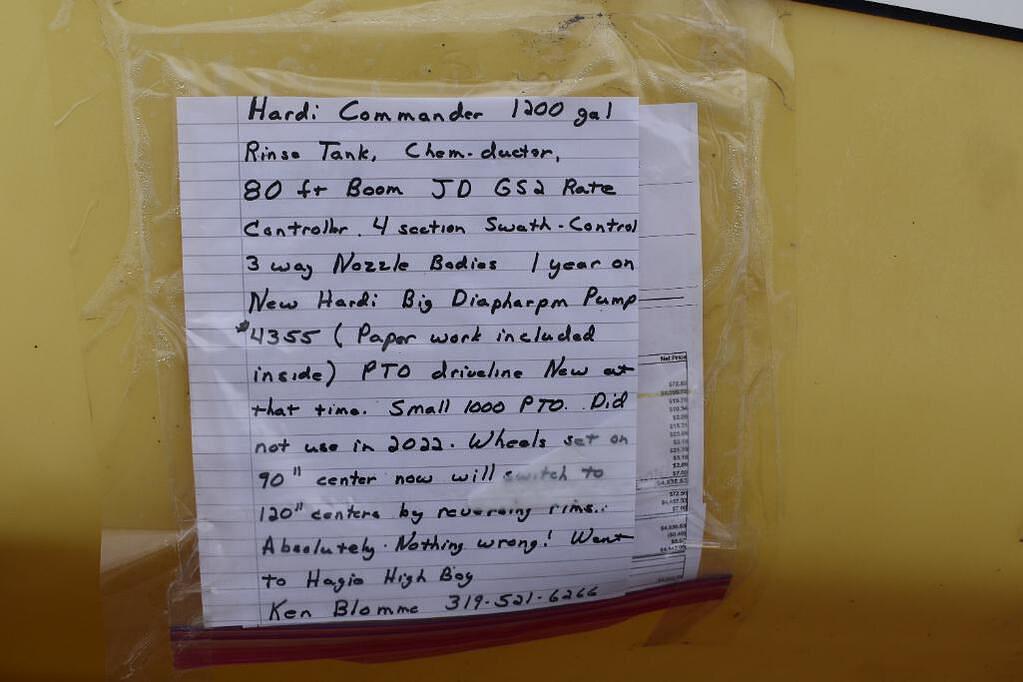 Hardi Commander 1200 gal
Rinse Tank, Chem-ductor,
80 ft Boom JD GS2 Rate
Controller. 4 section Swath-Control
3 way Nozzle Bodies 1 year on
New Hardi Big Diapharpm Pump
$4355 (Paper work included
inside) PTO driveline New at
that time. Small 1000 PTO. Did
not use in 2022. Wheels set on
90" center now will switch to
120" centers by reversing rims.
Absolutely. Nothing wrong! Went
to Hagie High Boy
Ken Blomme 319-521-6266
Net Price